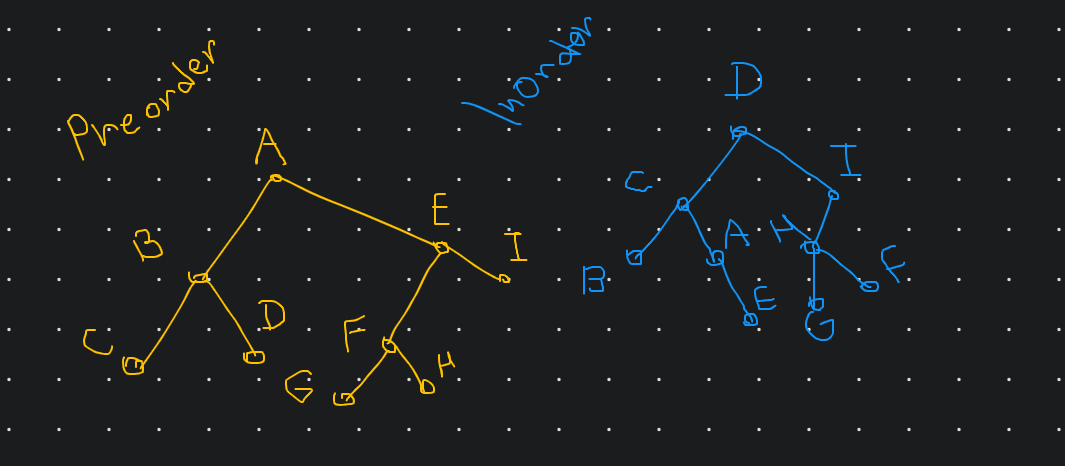 Preorder
A
B
E
I
C
D
F
G
H
Inorder
D
C
I
B
A
H
E
F
G